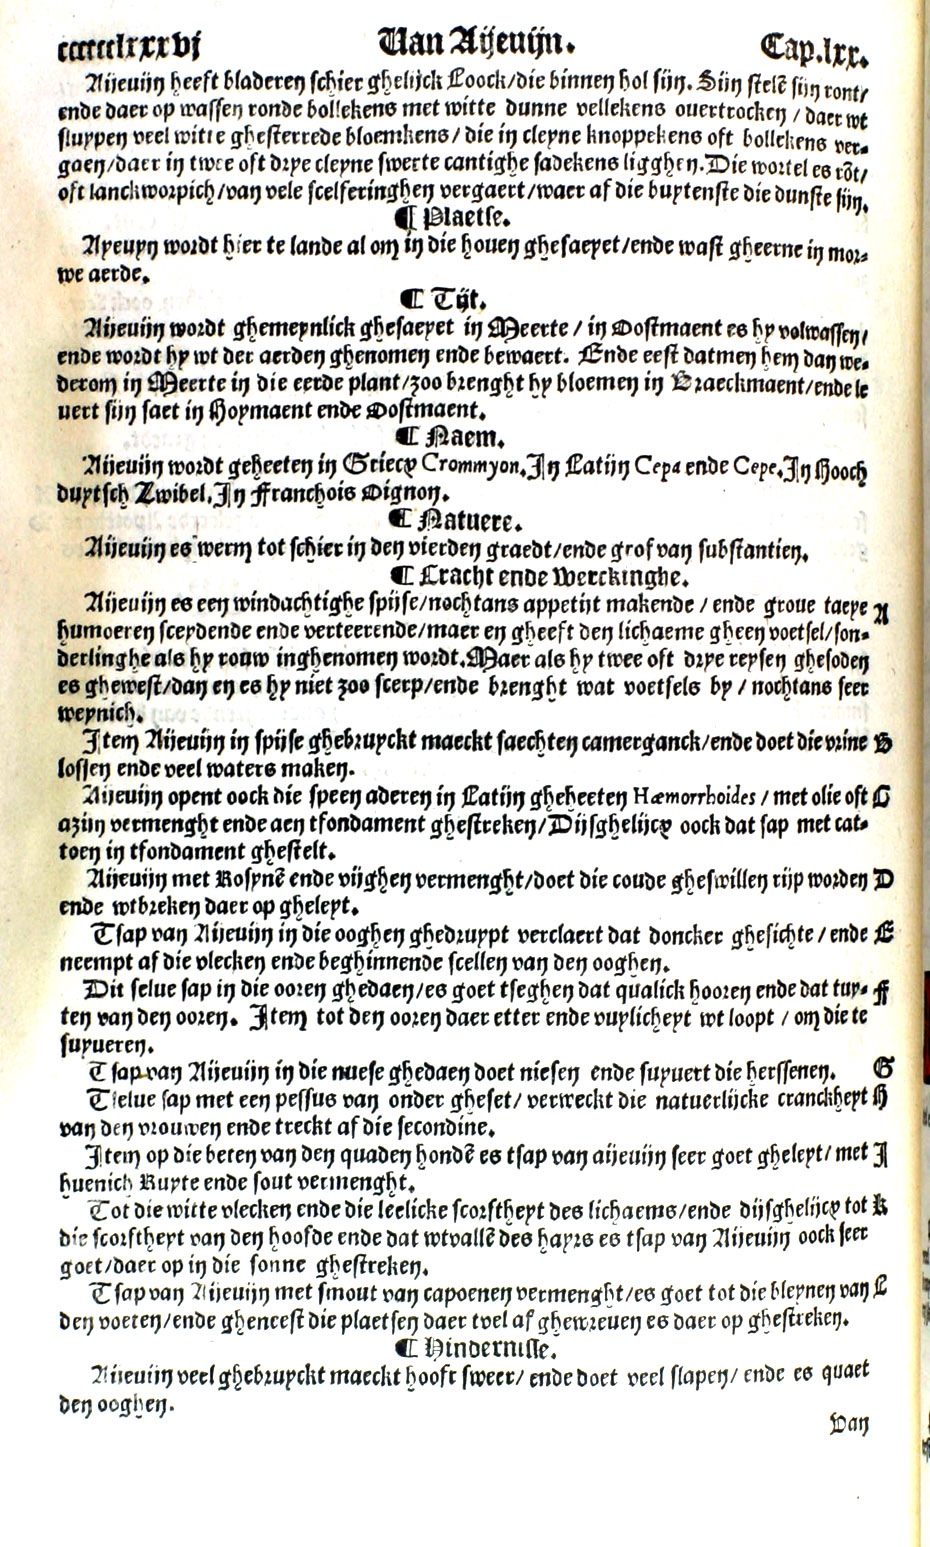 ccccclxxxvj Van Aijeuijn. Cap.lxx.
Aijeuijn heeft bladeren schier ghelijck Loock/die binnen hol sijn. Sijn stelē sijn ront/
ende daer op wassen ronde bollekens met witte dunne vellekens ouertrocken / daer wt
sluypen veel witte ghesterrede bloemkens / die in cleyne knoppekens oft bollekens ver-
gaen/daer in twee oft drye cleyne swerte cantighe sadekens ligghen. Die wortel es rōt/
oft lanckworpich/van vele scelferinghen vergaert/waer af die buytenste die dunste sijn.
¶ Plaetse.
Ayeuyn wordt hier te lande al om in die houen ghesaeyet/ende wast gheerne in mor-
we aerde.
¶ Tijt.
Aijeuijn wordt ghemeynlick ghesaeyet in Meerte / in Oostmaent es hy volwassen/
ende wordt hy wt der aerden ghenomen ende bewaert. Ende eest datmen hem dan we-
derom in Meerte in die eerde plant/zoo brenght hy bloemen in Braeckmaent/ende le
uert sijn saet in Hoymaent ende Oostmaent.
¶ Naem.
Aijeuijn wordt geheeten in Griecx Crommyon. In Latijn Cepa ende Cepe. In Hooch
duytsch Zwibel. In Franchois Oignon.
¶ Natuere.
Aijeuijn es werm tot schier in den vierden graedt/ende grof van substantien.
¶ Cracht ende Werckinghe.
Aijeuijn es een windachtighe spijse/nochtans appetijt makende / ende groue taeye A
humoeren sceydende ende verteerende/maer en gheeft den lichaeme gheen voetsel/son-
derlinghe als hy rouw inghenomen wordt. Maer als hy twee oft drye reysen ghesoden
es ghewest/dan en es hy niet zoo scerp/ende brenght wat voetsels by / nochtans seer
weynich.
Item Aijeuijn in spijse ghebruyckt maeckt saechten camerganck/ende doet die vrine B
lossen ende veel waters maken.
Aijeuijn opent oock die speen aderen in Latijn gheheeten Hæmorrhoides / met olie oft C
azijn vermenght ende aen tfondament ghestreken/Dijsghelijcx oock dat sap met cat-
toen in tfondament ghestelt.
Aijeuijn met Rosynē ende vijghen vermenght/doet die coude gheswillen rijp worden D
ende wtbreken daer op gheleyt.
Tsap van Aijeuijn in die ooghen ghedruypt verclaert dat doncker ghesichte / ende E
neempt af die vlecken ende beghinnende scellen van den ooghen.
Dit selue sap in die ooren ghedaen/es goet tseghen dat qualick hooren ende dat tuy- F
ten van den ooren. Item tot den ooren daer etter ende vuylicheyt wt loopt / om die te
suyueren.
Tsap van Aijeuijn in die nuese ghedaen doet niesen ende suyuert die herssenen. G
Tselue sap met een pessus van onder gheset/ verweckt die natuerlijcke cranckheyt H
van den vrouwen ende treckt af die secondine.
Item op die beten van den quaden hondē es tsap van aijeuijn seer goet gheleyt/ met I
huenich Ruyte ende sout vermenght.
Tot die witte vlecken ende die leelicke scorftheyt des lichaems/ende dijsghelijcx tot K
die scorftheyt van den hoofde ende dat wtvallē des hayrs es tsap van Aijeuijn oock seer
goet/daer op in die sonne ghestreken.
Tsap van Aijeuijn met smout van capoenen vermenght/es goet tot die bleynen van L
den voeten/ende gheneest die plaetsen daer tvel af ghewreuen es daer op ghestreken.
¶ Hindernisse.
Aijeuijn veel ghebruyckt maeckt hooft sweer/ ende doet veel slapen/ ende es quaet
den ooghen.
Van